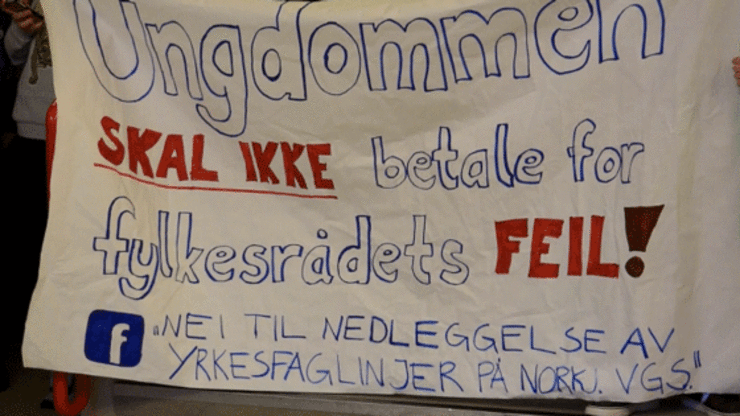 Ungdommen
SKAL IKKE betale for
fylkesrådets FEIL!
f "NEI TIL NEDLEGGELSE AV
YRKESFAGLINJER PÅ NORKJ. VGS."